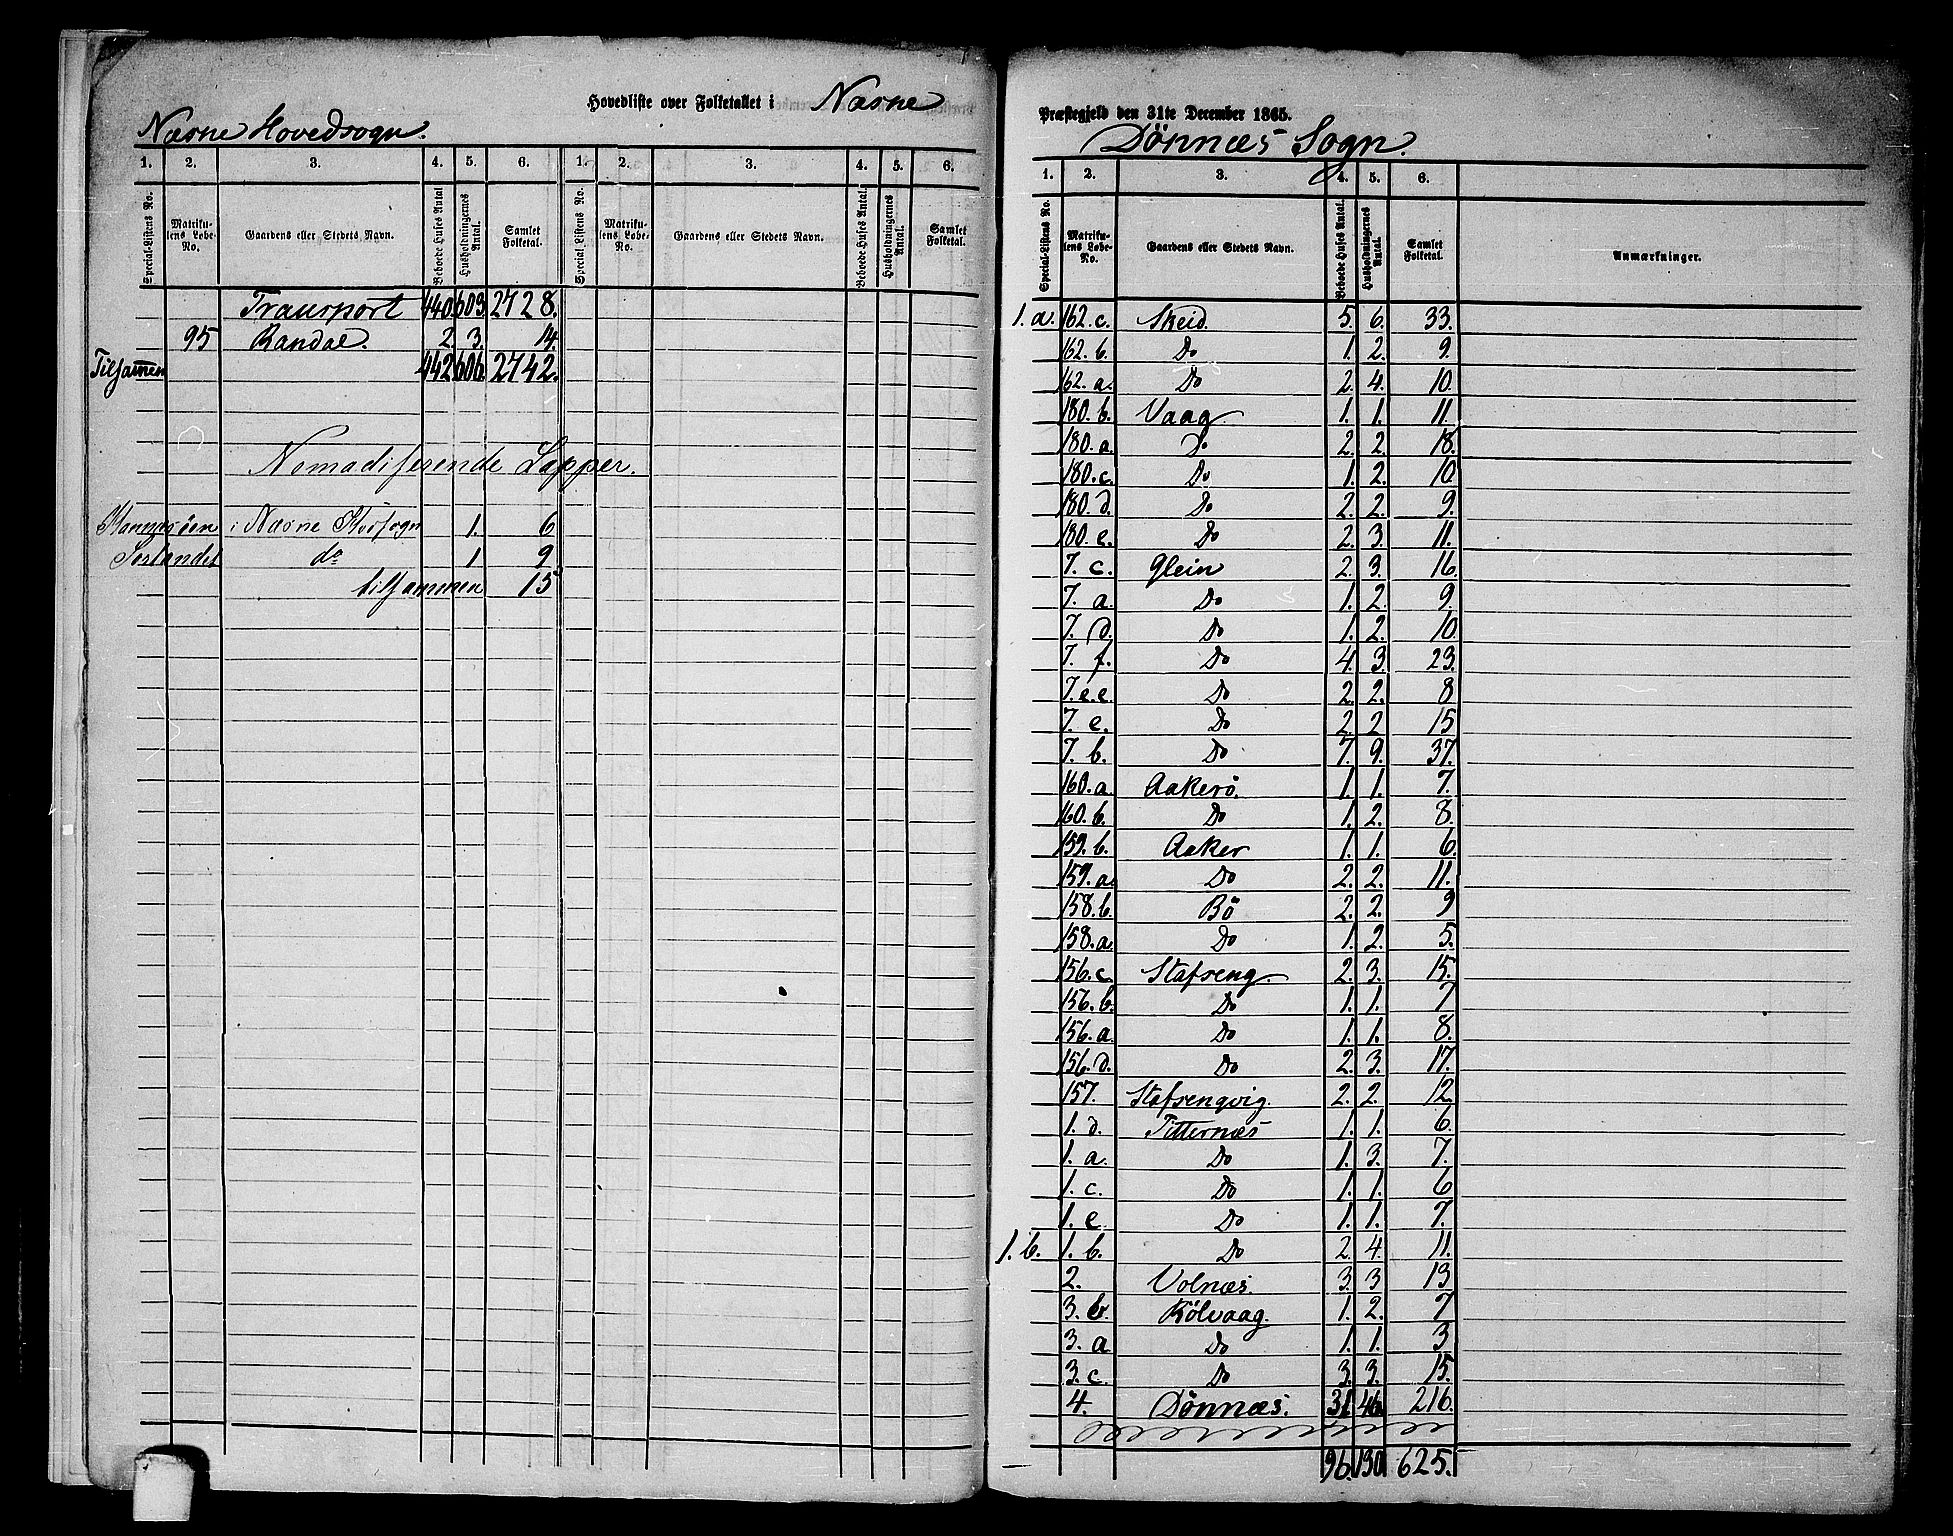 Hovedliste over Folketallet i Næsne
Næsne Hovedsogn.
1. 2. 3. 4. 5. 6. 1. 2. 3. 4. 5. 6.
Special-Listens No. Matrikulens Løbe-No. Gaardens eller Stedets Navn. Beboede Huses Antal Husholdningernes Antal. Samlet Folketal. Special Listens No. Matrikulens Løbe-No. Gaardens eller Stedets Navn. Beboede Huses Antal. Husholdningernes Antal. Samlet Folketal.
Transport 440. 603. 2728.
95 Randal. 2. 3. 14.
Tilsammen 442. 606. 2742.
Nomadiserende Lapper.
i Næsne Hovsogn 1. 6
do 1 9
tilsammen 15
Præstegjeld den 31te December 1865.
Dönnæs Sogn.
1. 2. 3. 4. 5. 6.
Special-Listens No. Matrikulens Løbe-No. Gaardens eller Stedets Navn. Beboede Huses Antal. Husholdningernes Antal. Samlet Folketal. Anmærkninger.
1. a. 162. c. Skeid. 5. 6. 33.
162. b. Do 1. 2. 9.
162. a. Do 2. 4. 10.
180. b. Vaag 1. 1. 11.
180. a. Do 2. 2. 18.
180. c. Do 1. 2. 10.
180. d. Do 2. 2. 9.
180. e. Do 2. 3. 11.
7. c. Glein 2. 3. 16.
7. a. Do 1. 2. 9.
7. d. Do 1. 2. 10.
7. f. Do 4. 3. 23.
7. e.e. Do 2. 2. 8
7. e. Do 2. 2 15
7. b. Do 7. 9. 37.
160. a. Aakerö. 1. 1. 7.
160. b. Do 1. 2. 8.
159. b. Aaker 1. 1. 6.
159. a. Do 2. 2. 11.
158. b. Bö 2. 2. 9
158. a. Do 1. 2. 5.
156. c. Stafseng. 2. 3. 15.
156. b. Do 1. 1. 7
156. a. Do 1. 1. 8.
156. d. Do 2. 3. 17.
157. Stafsengvig. 2. 2. 12.
1. d. Titternæs 1. 1. 6.
1. a. Do 1. 3. 7.
1. c. Do 1. 1. 6
1. e. Do 1. 1. 7.
1. b. 1. b. Do 2. 4. 11.
2. Volnæs. 3. 3 13
3. b. Kölvaag. 1. 2. 7
3. a Do 1. 1. 3
3. c. Do 3. 3. 15.
4. Dönnæs. 31. 46. 216.
96. 130 625.